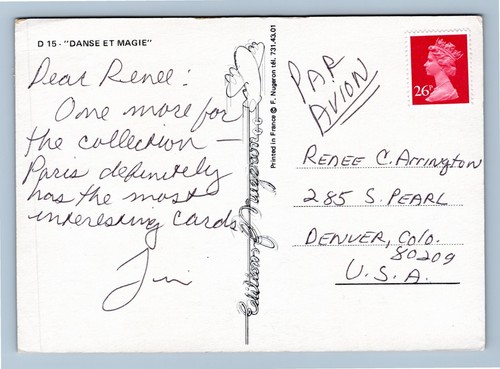 D 15 - "DANSE ET MAGIE"
Dear Renee:
One more for
the collection —
Paris definitely
has the most
interesting cards
Jim
Editions f Nugeron
Printed in France © F. Nugeron tél. 731.43.01
PAR
AVION
26P
RENEE C. Arrington
285 S. PEARL
DENVER, Colo.
80209
U.S.A.